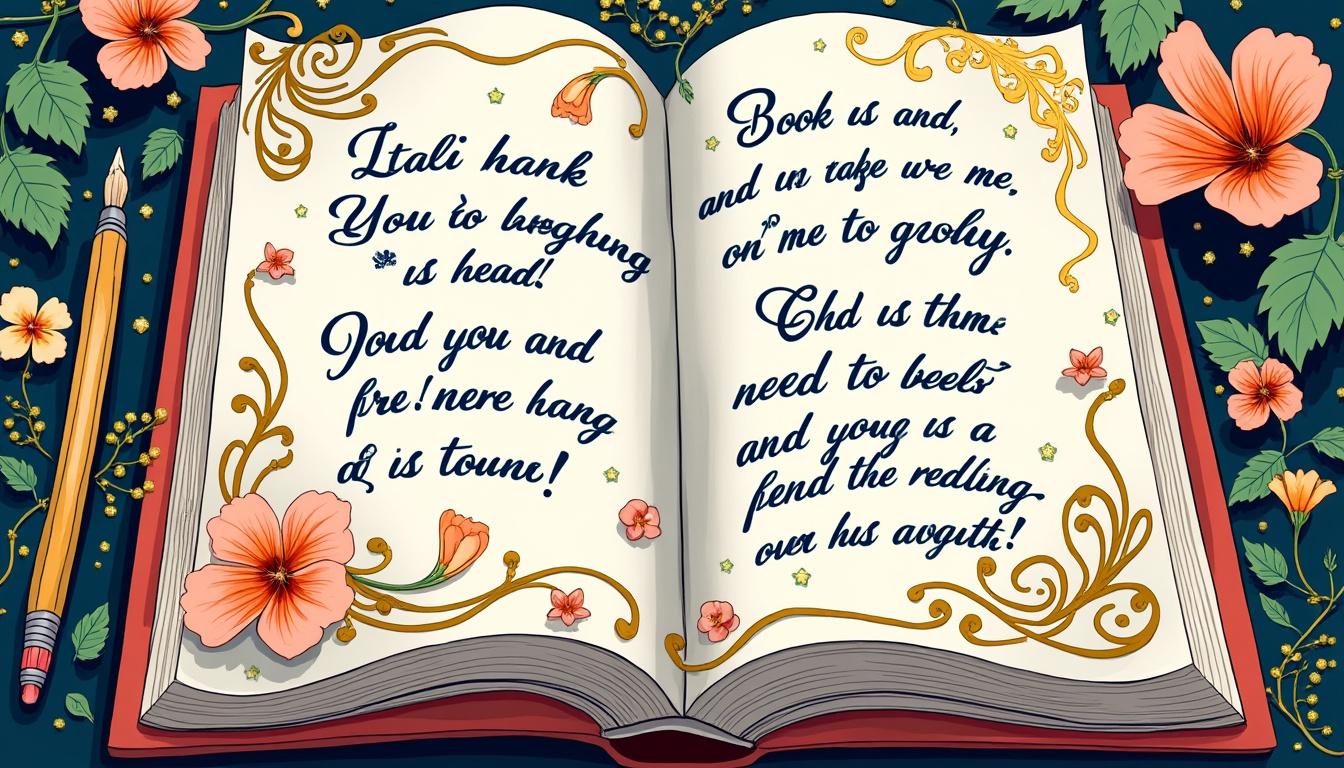 Itali hank
You to
is head!
Joud you and
fire! nere hang
is toune!
Book is and,
and un take we me,
on me to grohy.
Chd is thme
need to beels
and youg is a
fend the redling
our his aogith!